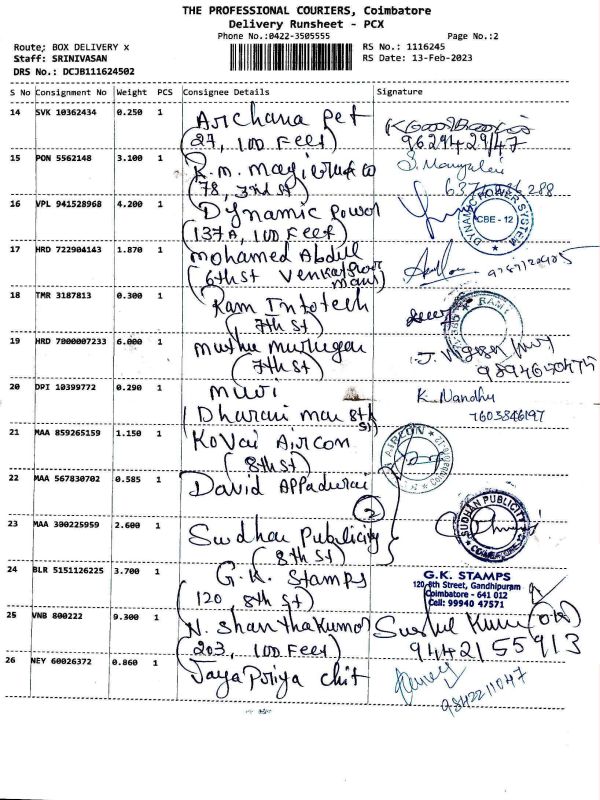 THE PROFESSIONAL COURIERS, Coimbatore
Delivery Runsheet - PCX
Phone No.:0422-3505555 Page No.:2
Route; BOX DELIVERY x RS No.: 1116245
Staff: SRINIVASAN RS Date: 13-Feb-2023
DRS No.: DCJB111624502
S No Consignment No Weight PCS Consignee Details Signature
14 SVK 10362434 0.250 1 Archana Pet
(27, 100 Feet) 9629429147
15 PON 5562148 3.100 1 K.m. S. Mangalai
(78, 3rd St)
16 VPL 941528968 4.200 1 Dynamic Power DYNAMIC POWER SYSTEM CBE - 12
(137A, 100 Feet)
17 HRD 722904143 1.870 1 Mohamed Abdul
(6th St
18 TMR 3187813 0.300 1 Ram Infotech
(7th St)
19 HRD 7000007233 6.000 1 muthu murugan
(7th St) 9894650475
20 DPI 10399772 0.290 1 K. Nandhu
(Dharani 8th St) 7603846197
21 MAA 859265159 1.150 1 Kovai Aircon AIRCON
(8th St)
22 MAA 567830702 0.585 1 David Appadurai
2
23 MAA 300225959 2.600 1 Sudhan Publicity SUDHAN PUBLICITY COIMBATORE
(8th St)
24 BLR 5151126225 3.700 1 G.K. Stamps G.K. STAMPS
(120 8th St) 120, 8th Street, Gandhipuram
Coimbatore - 641 012
Cell: 99940 47571
25 VNB 800222 9.300 1 N. Shanthakumar
(203, 100 Feet) 9442155913
26 NEY 60026372 0.860 1 Jayapriya chit
9842211047